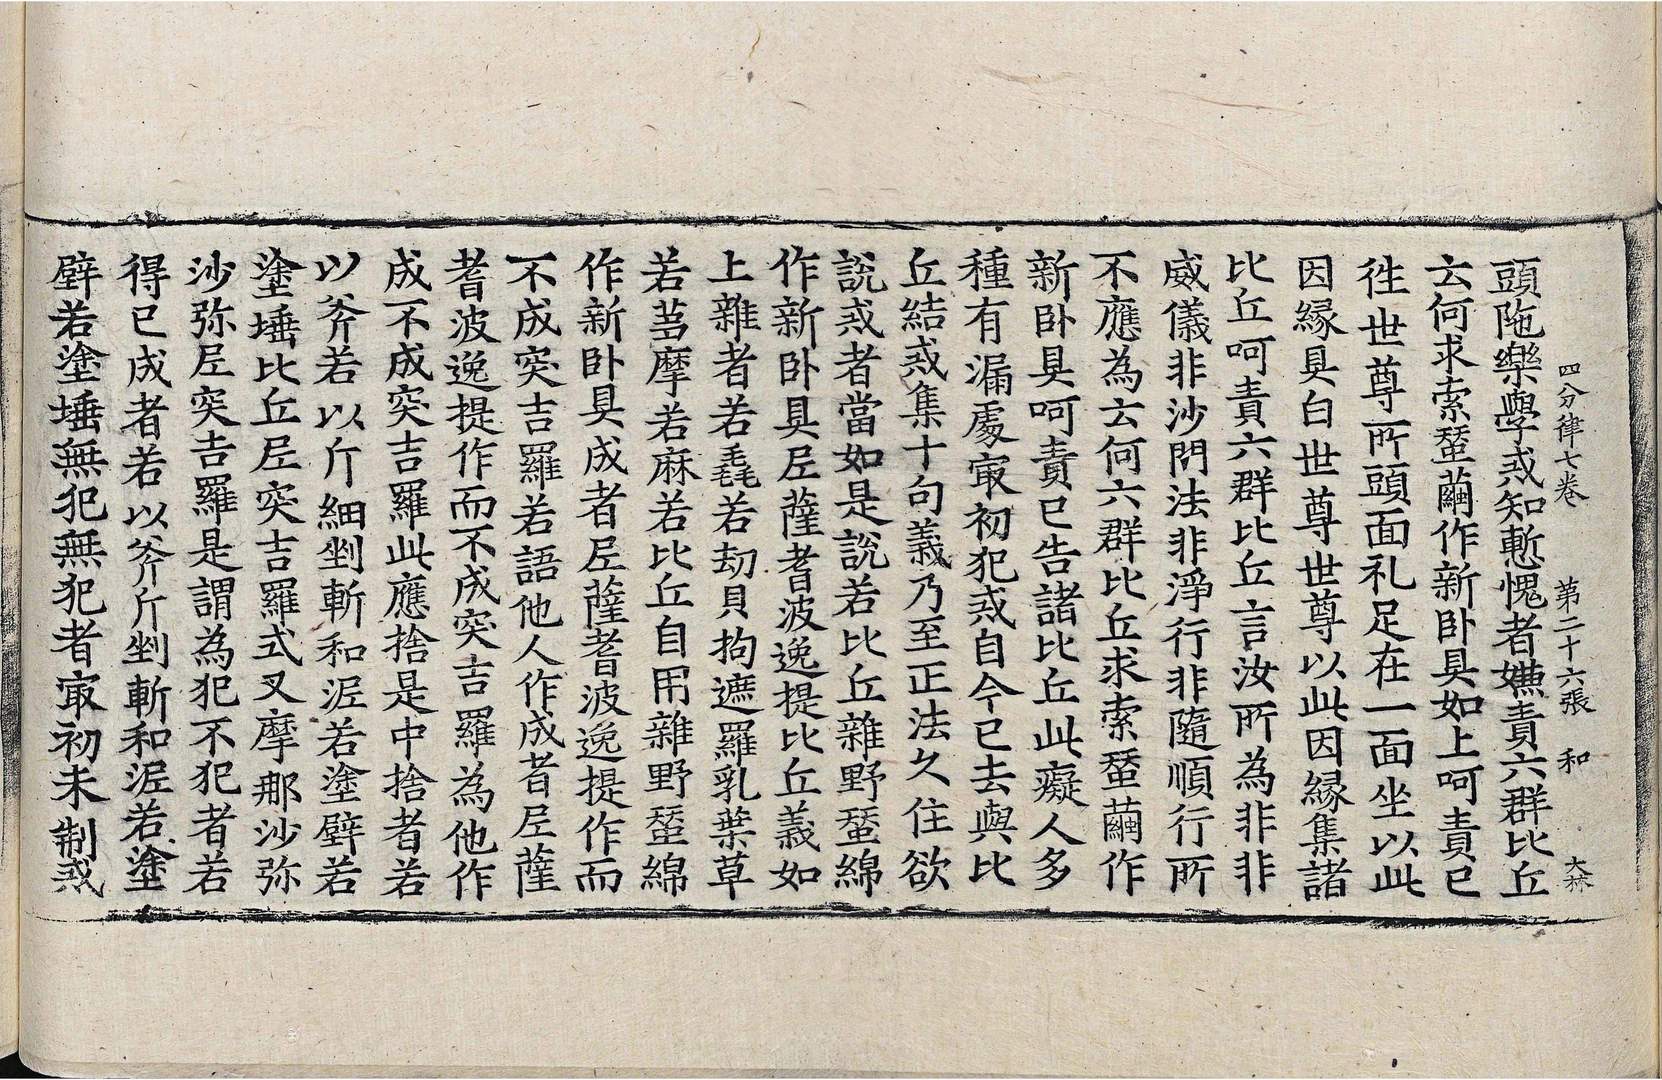 四分律七卷　第二十六張　和　大林
頭陁樂學戒知慙愧者嫌責六群比丘
云何求索蠶繭作新卧具如上呵責已
徃世尊所頭面礼足在一面坐以此
因緣具白世尊世尊以此因緣集諸
比丘呵責六群比丘言汝所為非非
威儀非沙門法非淨行非隨順行所
不應為云何六群比丘求索蠶繭作
新卧具呵責已告諸比丘此癡人多
種有漏處㝡初犯戒自今已去與比
丘結戒集十句義乃至正法久住欲
說戒者當如是說若比丘雜野蠶綿
作新卧具尼薩耆波逸提比丘義如
上雜者若毳若劫貝拘遮羅乳葉草
若芻摩若麻若比丘自用雜野蠶綿
作新卧具成者尼薩耆波逸提作而
不成突吉羅若語他人作成者尼薩
耆波逸提作而不成突吉羅為他作
成不成突吉羅此應捨是中捨者若
以斧若以斤細剉斬和泥若塗壁若
塗埵比丘尼突吉羅式叉摩那沙弥
沙弥尼突吉羅是謂為犯不犯者若
得已成者若以斧斤剉斬和泥若塗
壁若塗埵無犯無犯者㝡初未制戒